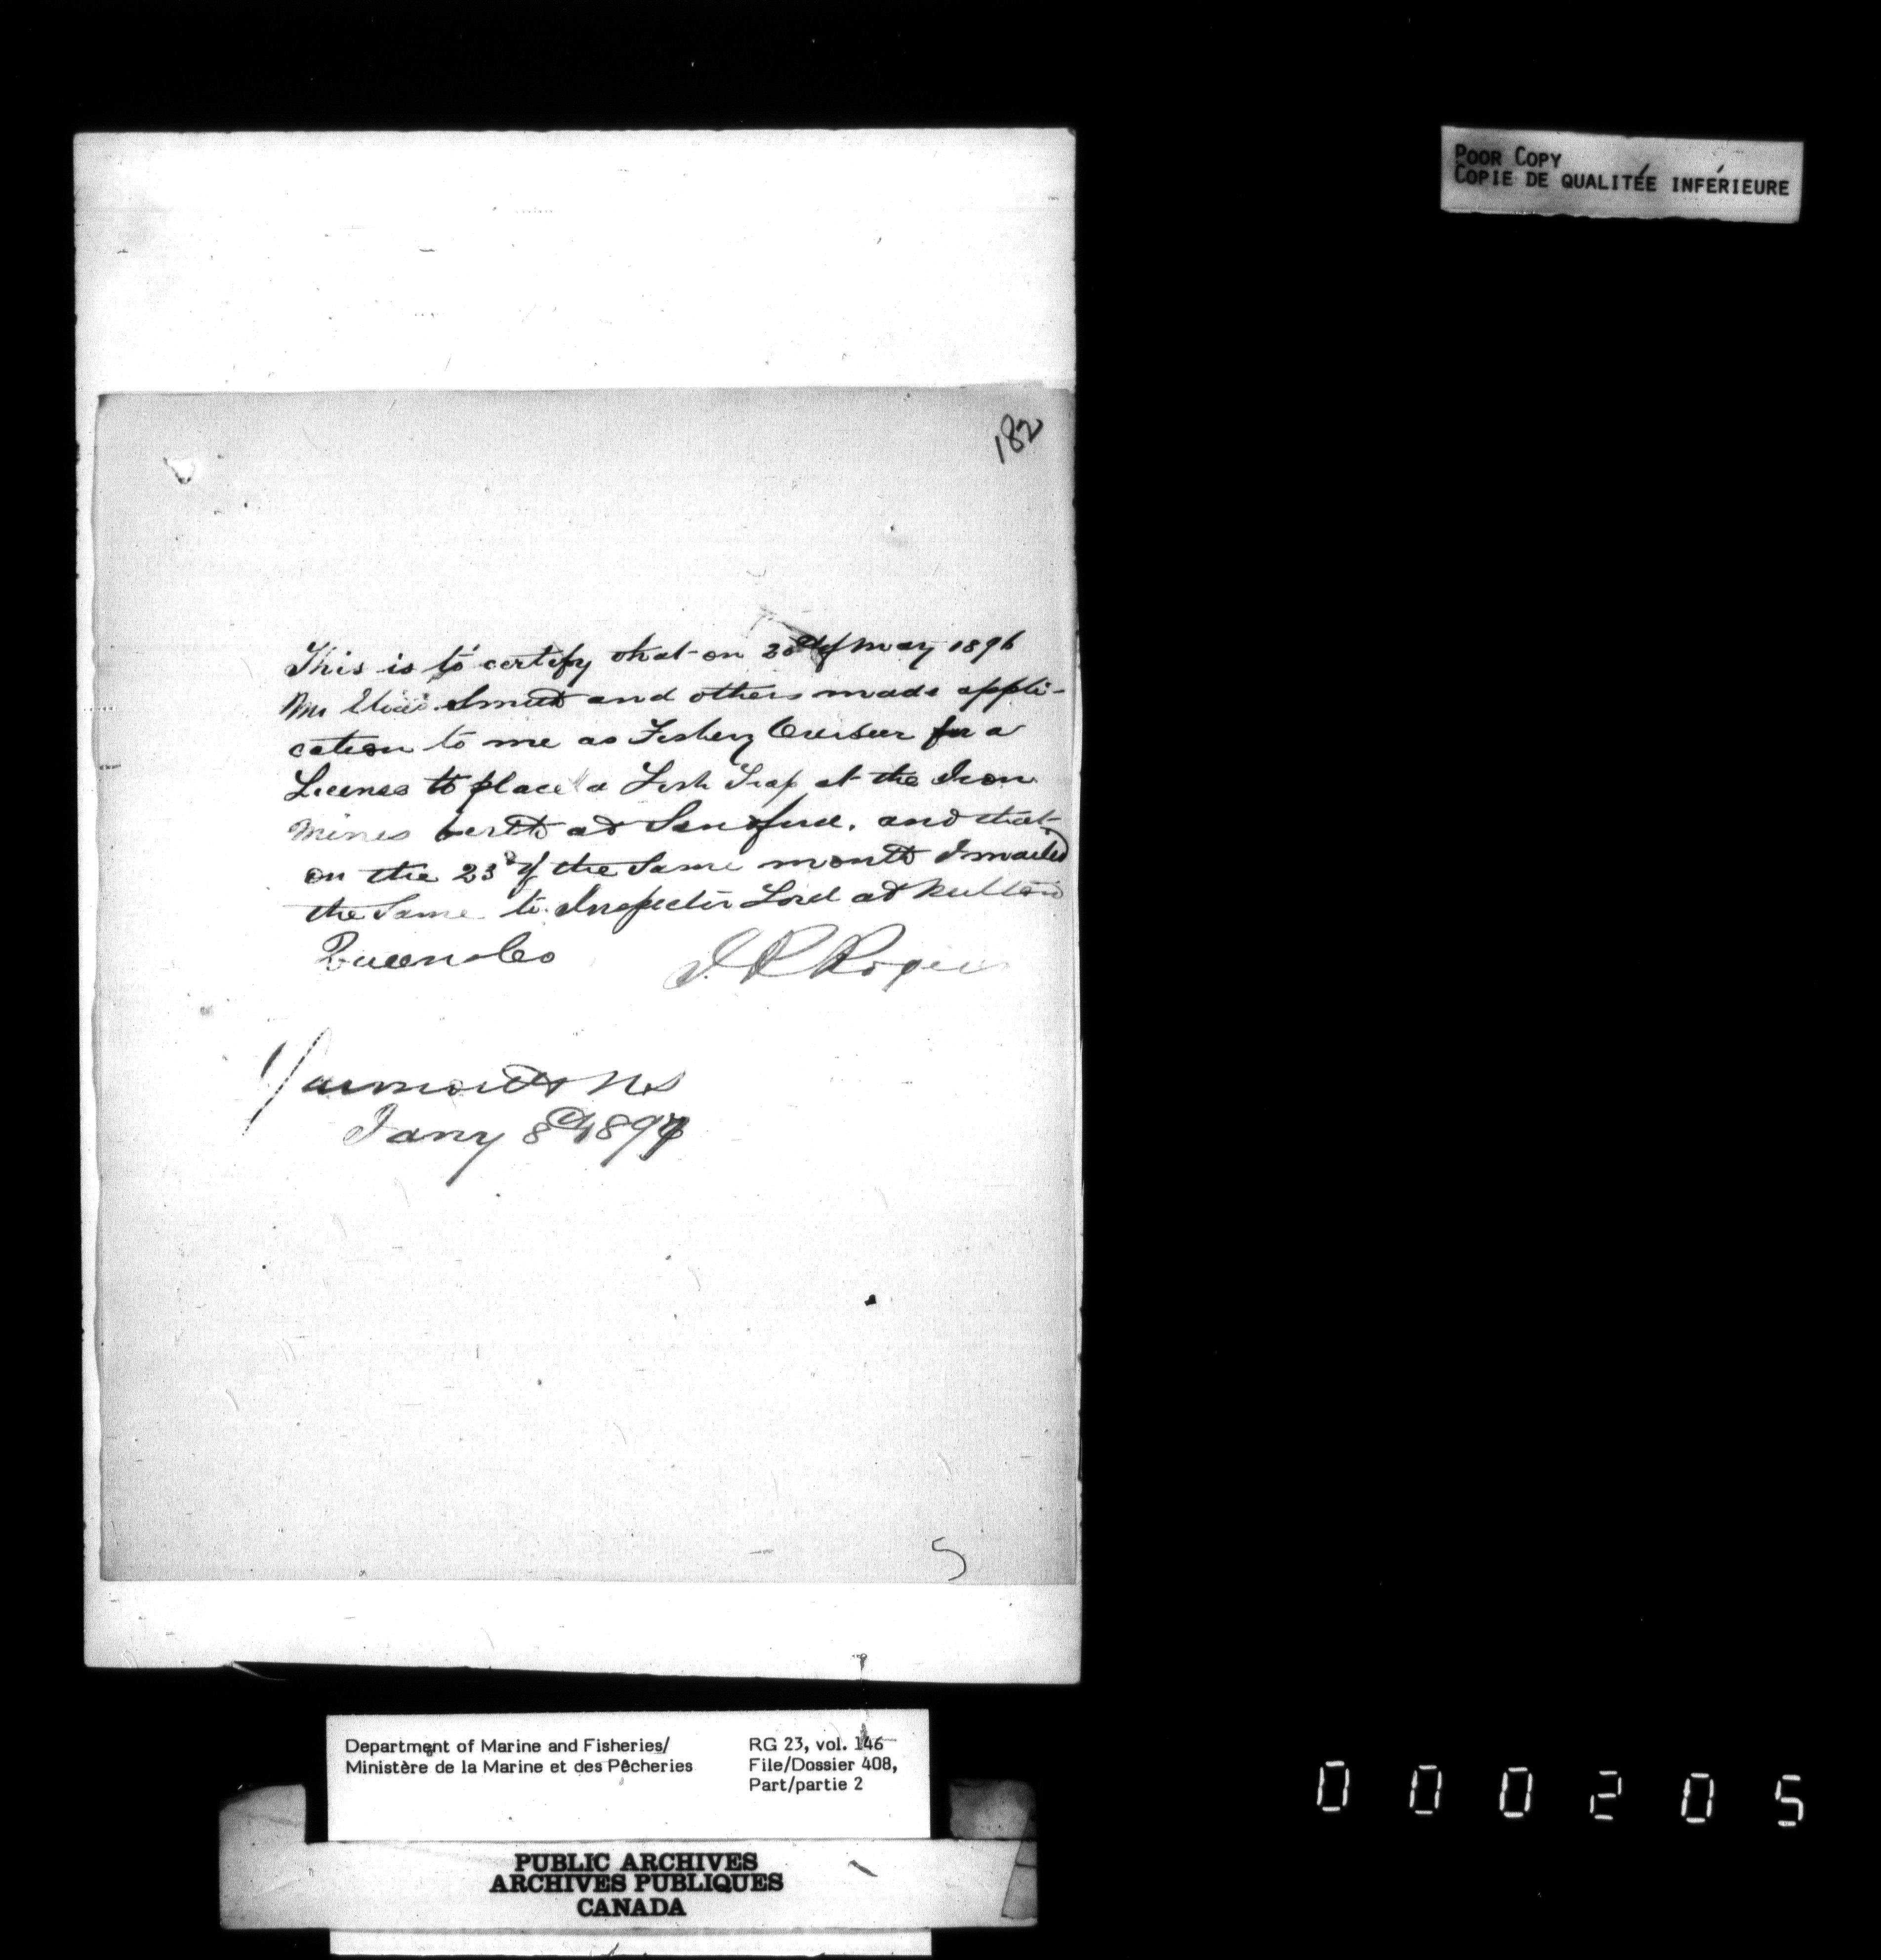 POOR COPY
COPIE DE QUALITÉE INFÉRIEURE
182
This is to certify that on 20th of May 1896
Mr Elias Smith and others made appli-
cation to me as Fishery Overseer for a
License to place a Fish Trap at the Iron
Mines berth at Sandford. and that
on the 23d of the Same month I mailed
the Same to Inspector Ford at Milton
Queens Co
J R Rogers
Yarmouth NS
Jany 8th 1897
5
Department of Marine and Fisheries/
Ministère de la Marine et des Pêcheries
RG 23, vol. 146
File/Dossier 408,
Part/partie 2
PUBLIC ARCHIVES
ARCHIVES PUBLIQUES
CANADA
000205